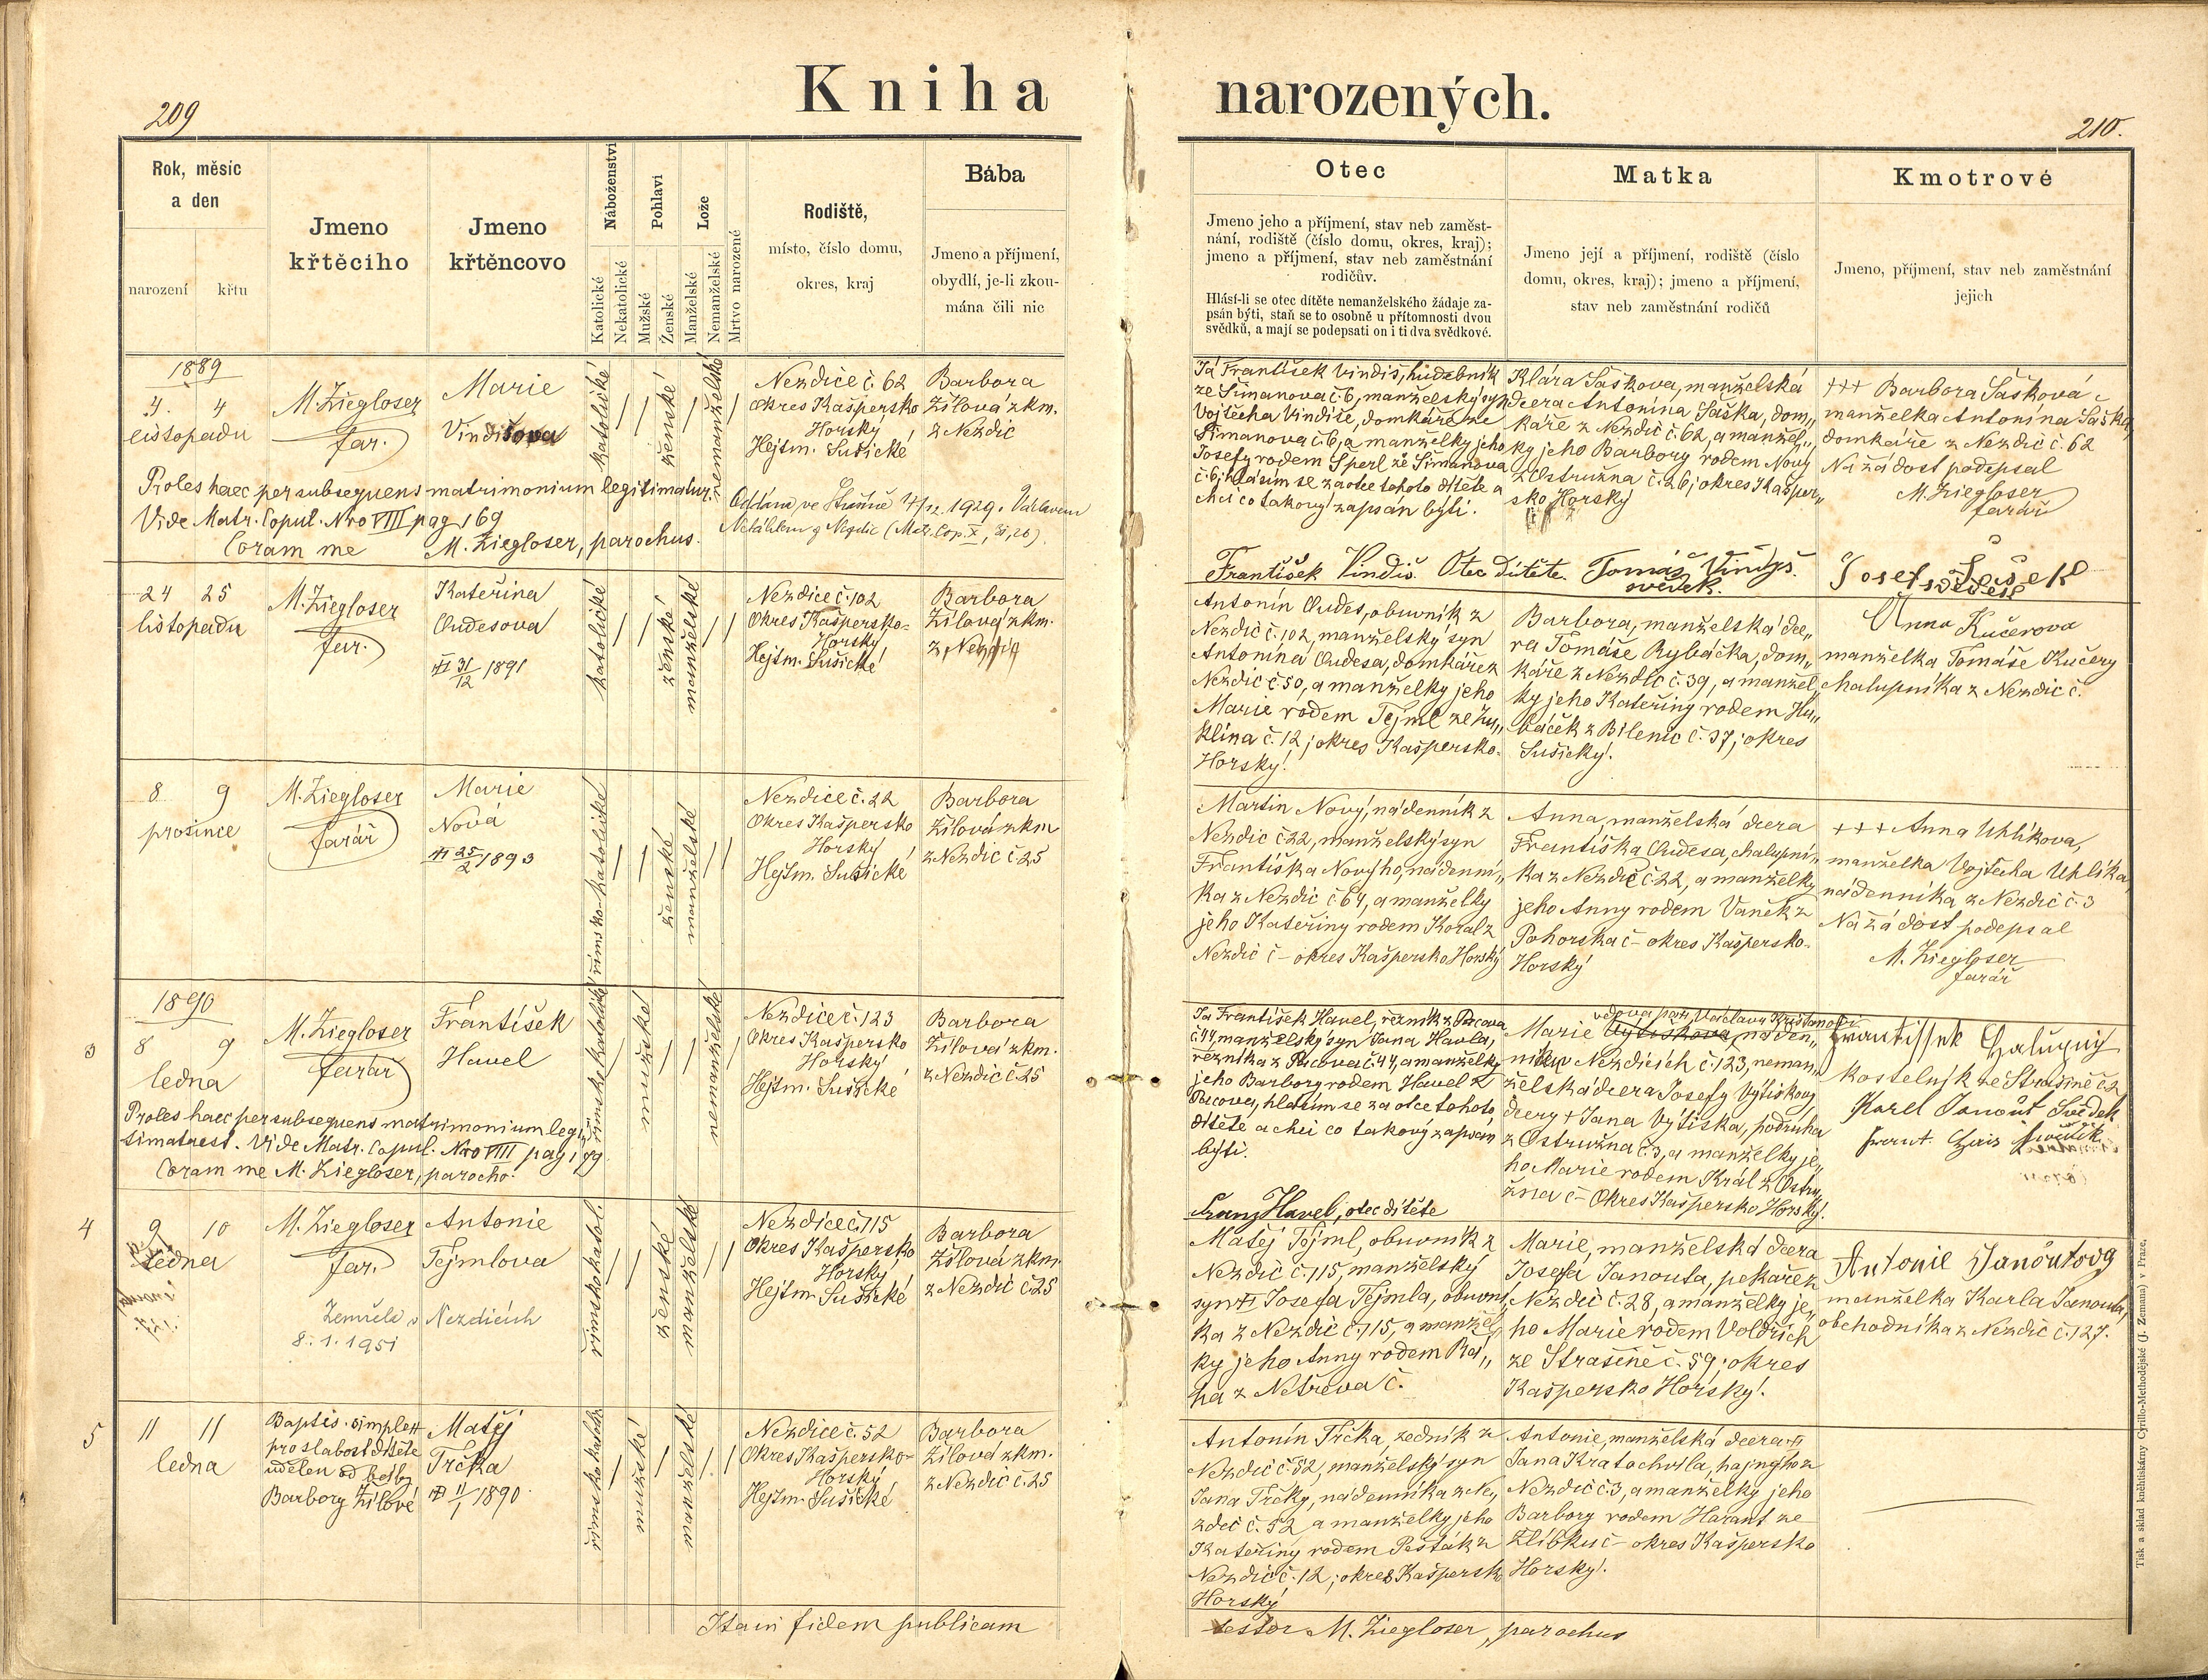 209
Kniha narozených.
210.
Rok, měsíc
a den
narození
křtu
Jmeno
křtěcího
Jmeno
křtěncovo
Náboženství
Katolické
Nekatolické
Pohlaví
Mužské
Ženské
Lože
Manželské
Nemanželské
Mrtvo narozené
Rodiště,
místo, číslo domu,
okres, kraj
Bába
Jmeno a příjmení,
obydlí, je-li zkou-
mána čili nic
Otec
Jmeno jeho a příjmení, stav neb zaměst-
nání, rodiště (číslo domu, okres, kraj);
jmeno a příjmení, stav neb zaměstnání
rodičův.
Hlásí-li se otec dítěte nemanželského žádaje za-
psán býti, staň se to osobně u přítomnosti dvou
svědků, a mají se podepsati on i ti dva svědkové.
Matka
Jmeno její a příjmení, rodiště (číslo
domu, okres, kraj); jmeno a příjmení,
stav neb zaměstnání rodičů
Kmotrové
Jmeno, příjmení, stav neb zaměstnání
jejich
1889
4. 4
listopadu
M. Ziegloser
far.
Marie
Vindišova
katolické
ženské
nemanželské
Nezdice č. 62
Okres Kašpersko
Horský
Hejtm. Sušické
Barbora
Žílová zkm.
z Nezdic
Proles haec per subsequens matrimonium legitimatur.
Vide Matr. Copul. Nro VIII pag 169
Coram me M. Ziegloser, parochus.
1929. Václavem
z Nezdic (Matr. Cop. X,
Já František Vindiš, hudebník
ze Šimanova č. 6, manželský syn
Vojtěcha Vindiše, domkáře ze
Šimanova č. 6, a manželky jeho
Josefy rodem Šperl ze Šimanova
č. 6, hlásím se za otce tohoto dítěte a
chci co takový zapsán býti.
Klára Šaškova, manželská
dcera Antonína Šaška, dom„
káře z Nezdic č. 62, a manžel„
ky jeho Barbory rodem Nový
z Ostružna č. 26, okres Kašper„
sko Horský
+++ Barbora Šašková
manželka Antonína Šaška,
domkáře z Nezdic č. 62
Na žádost podepsal
M. Ziegloser
farář
František Vindiš. Otec Dítěte. Tomáš Vindyš.
svědek.
Josef
24 25
listopadu
M. Ziegloser
far.
Kateřina
Oudesova
31/12 1891
katolické
ženské
manželské
Nezdice č. 102
Okres Kašpersko-
Horský
Hejtm. Sušické
Barbora
Žílová zkm.
z Nezdic
Antonín Oudes, obuvník z
Nezdic č. 102, manželský syn
Antonína Oudesa, domkáře z
Nezdic č. 50, a manželky jeho
Marie rodem Tejml ze Žu„
klína č. 12, okres Kašpersko-
Horský.
Barbora, manželská dce„
ra Tomáše Rybáčka, dom„
káře z Nezdic č. 39, a manžel„
ky jeho Kateřiny rodem Hu„
báček z Bilenic č. 37, okres
Sušický.
Anna Kučerova
manželka Tomáše Kučery
chalupníka z Nezdic č.
8 9
prosince
M. Ziegloser
farář
Marie
Nová
25/2 1893
římsko-katolické
ženské
manželské
Nezdice č. 22
Okres Kašpersko
Horský
Hejtm. Sušické
Barbora
Žílová zkm
z Nezdic č. 25
Martin Nový, nádenník z
Nezdic č 22, manželský syn
Františka Nového, nádenní„
ka z Nezdic č. 64, a manželky
jeho Kateřiny rodem Koral z
Nezdic č – okres Kašpersko Horský
Anna, manželská dcera
Františka Oudesa, chalupní„
ka z Nezdic č. 22, a manželky
jeho Anny rodem Vaněk z
Pohorska č – okres Kašpersko-
Horský
+++ Anna Uhlíkova,
manželka Vojtěcha Uhlíka,
nádenníka z Nezdic č. 3
Na žádost podepsal
M. Ziegloser
farář
1890
3
8 9
ledna
M. Ziegloser
farář
František
Havel
římsko katolické
mužské
nemanželské
Nezdice č. 123
Okres Kašpersko
Horský
Hejtm. Sušické
Barbora
Žílová zkm.
z Nezdic č. 25
Proles haec per subsequens matrimonium legi„
timata est. Vide Matr. Copul. Nro VIII pag 199.
Coram me M. Ziegloser, parocho.
Já František Havel, řezník z Pacova
č. 44, manželský syn Jana Havla,
řezníka z Pacova č. 44, a manželky
jeho Barbory rodem Havel z
Pacova, hlásím se za otce tohoto
dítěte a chci co takový zapsán
býti.
Franz Havel, otec dítěte
vdova po
Marie Vytiskova, náden„
nice v Nezdicích č. 123, neman„
želská dcera Josefy Vytiskovy
dcery + Jana Vytiska, podruha
z Ostružna č. 3, a manželky je„
ho Marie rodem Král z Ostru„
žna č – Okres Kašpersko Horský.
kostelník ze Strašině č. 2
Karel Janout Svědek
4
9 10
ledna
M. Ziegloser
far.
Antonie
Tejmlova
Zemřela v Nezdicích
8. 1. 1951
římsko katol.
ženské
manželské
Nezdice č. 115
Okres Kašpersko
Horský
Hejtm Sušické
Barbora
Žílová zkm.
z Nezdic č 25
Matěj Tejml, obuvník z
Nezdic č. 115, manželský
syn Josefa Tejmla, obuvní„
ka z Nezdic č. 115, a manžel„
ky jeho Anny rodem
z Netřeva č.
Marie, manželská dcera
Josefa Janouta, pekaře z
Nezdic č. 28, a manželky je„
ho Marie rodem Voldřich
ze Strašině č. 59, okres
Kašpersko Horský.
Antonie Janoutovg
manželka Karla Janouta,
obchodníka z Nezdic č. 127.
5
11 11
ledna
Baptis. simplex
pro slabost dítěte
udělen od báby
Barbory Žílové
Matěj
Trčka
11/1 1890
římsko katol.
mužské
manželské
Nezdice č. 52
Okres Kašpersko-
Horský
Hejtm. Sušické
Barbora
Žílová zkm.
z Nezdic č. 25
Antonín Trčka, zedník z
Nezdic č. 52, manželský syn
Jana Trčky, nádenníka z Ne„
zdic č. 52 a manželky jeho
Kateřiny rodem Pešták z
Nezdic č. 12, okres Kašpersko
Horský
Antonie, manželská dcera
Jana Kratochvíla, hajného z
Nezdic č. 3, a manželky jeho
Barbory rodem Harant ze
Žlíbku č – okres Kašpersko
Horský.
Itam fidem publicam
testor M. Ziegloser, parochus
Tisk a sklad knihtiskárny Cyrillo-Methodějské (J. Zeman) v Praze.